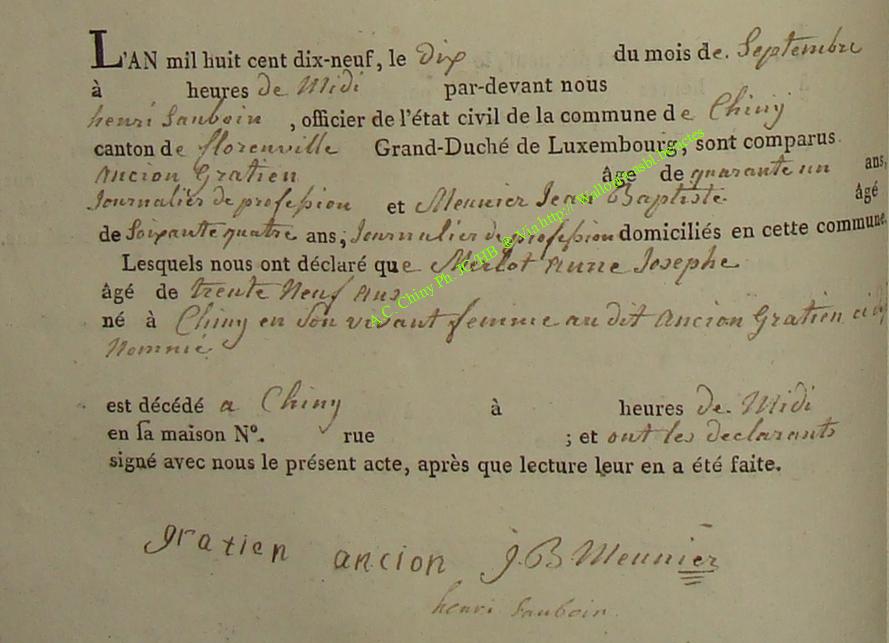 L'AN mil huit cent dix-neuf, le dix du mois de. Septembre
à heures de Midi par-devant nous
henri Sauboin , officier de l'état civil de la commune de Chiny
canton de florenville Grand-Duché de Luxembourg, sont comparus
Ancion Gratien âge de quarante un ans,
Journalier de profession et Meunier Jean Baptiste âgé
de Soixante quatre ans, Journalier de profession domiciliés en cette commune.
Lesquels nous ont déclaré que Merlot Anne Josephe
âgé de trente Neuf Ans
né à Chiny en Son vivant femme au dit Ancion Gratien
Nommé
est décédé a Chiny à heures de. Midi
en sa maison N°. rue ; et ont les declarants
signé avec nous le présent acte, après que lecture leur en a été faite.
gratien ancion J. B Meunier
henri Sauboin.
A.C. Chiny Ph. JC HB @ Via http://